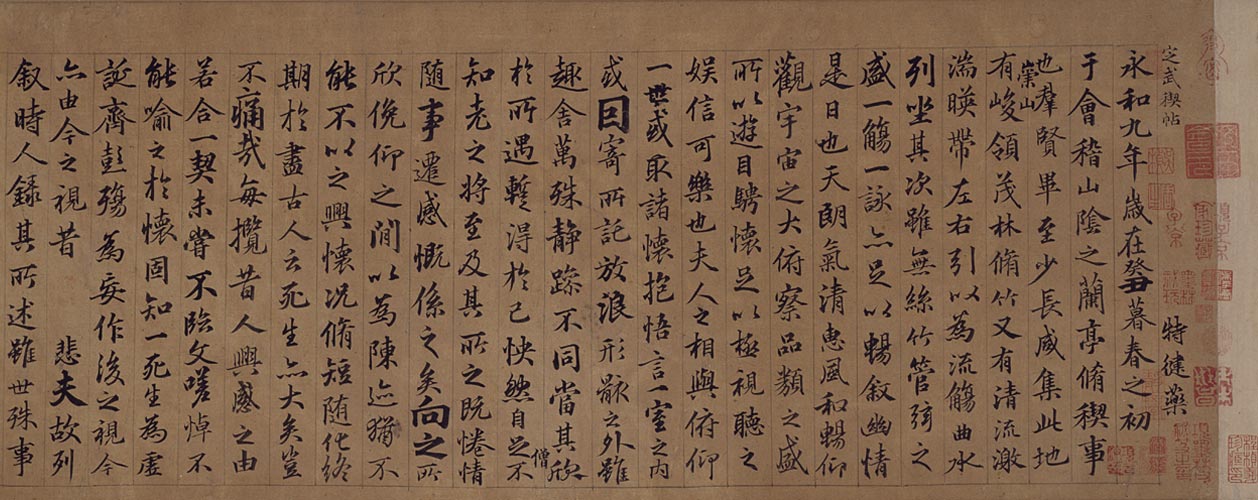 定武禊帖
特健藥
永和九年歲在癸丑暮春之初
于會稽山陰之蘭亭脩禊事
也羣賢畢至少長咸集此地
崇山
有峻領茂林脩竹又有清流激
湍暎帶左右引以為流觴曲水
列坐其次雖無絲竹管弦之
盛一觴一詠亦足以暢叙幽情
是日也天朗氣清惠風和暢仰
觀宇宙之大俯察品類之盛
所以遊目騁懷足以極視聽之
娛信可樂也夫人之相與俯仰
一世或取諸懷抱悟言一室之内
或因寄所託放浪形骸之外雖
趣舍萬殊静躁不同當其欣
於所遇蹔得於己怏然自足不
僧
知老之將至及其所之既惓情
随事遷感慨係之矣向之所
欣俛仰之閒以為陳迹猶不
能不以之興懷况脩短随化終
期於盡古人云死生亦大矣豈
不痛哉每攬昔人興感之由
若合一契未嘗不臨文嗟悼不
能喻之於懷固知一死生為虛
誕齊彭殤為妄作後之視今
亦由今之視昔 悲夫故列
叙時人録其所述雖世殊事